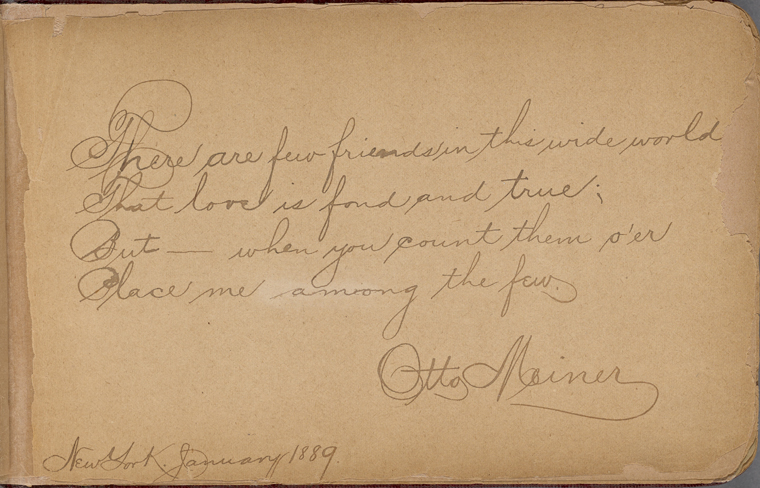 There are few friends in this wide world
That love is fond and true;
But — when you count them o'er
Place me among the few.
Otto Meiner
New York. January 1889.